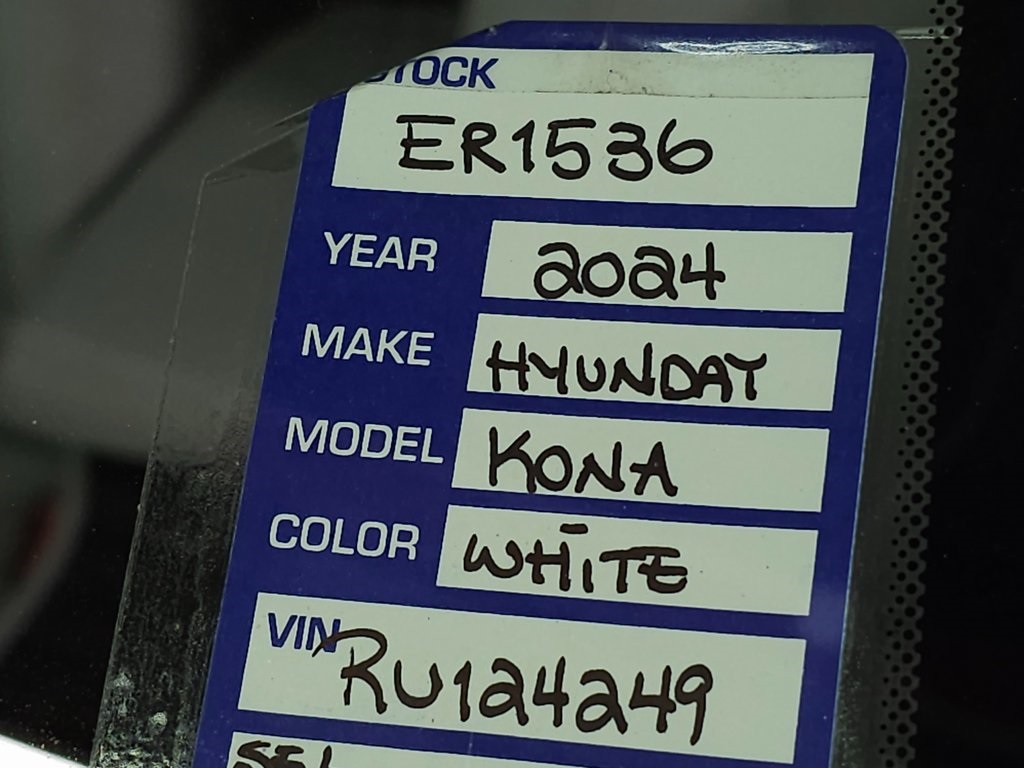 STOCK
ER1536
YEAR 2024
MAKE HYUNDAY
MODEL KONA
COLOR WHITE
VIN RU124249
SEL